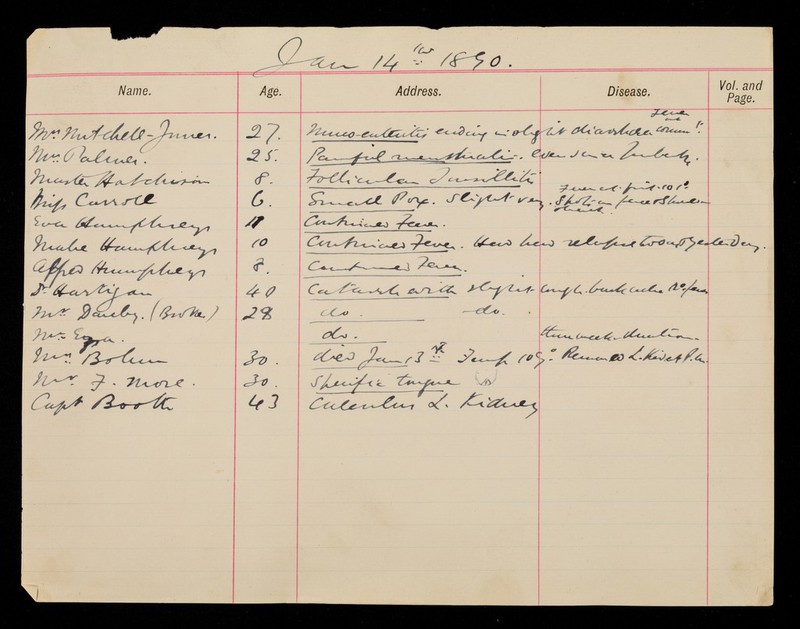 Jan 14th 1890.
Name. Age. Address. Disease. Vol. and Page.
Mrs. Mitchell-Innes. 27. Muco-enteritis ending in slight diarrhoea
Mrs. Palmer. 25. Painful menstruation.
Master Hutchison 8. Follicular Tonsillitis
Miss Carroll 6. Small Pox. Slight very.
Eva Humphreys 11 Continued Fever.
Mabe Humphreys 10 Continued Fever. Has had relapse yesterday.
Alfred Humphreys 8. Continued Fever.
Dr Hartigan 40 Catarrh with slight cough back ache
Mr. Danby. (Broker) 28 do. do.
Mr. Ezra. do. three weeks duration
Mr. Bohm 30. died Jan 13th Temp 109° Removed L. Kidney
Mr. F. More. 30. Specific tongue
Capt Booth 43 Calculus L. Kidney